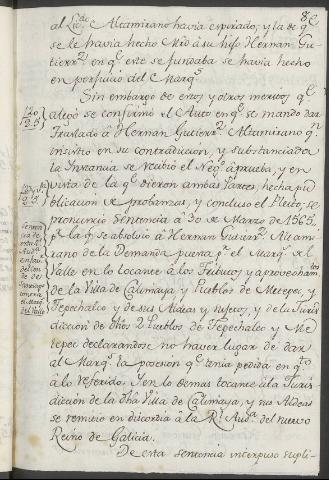 al Licdo Altamirano havia espirado, y la de qe
se le havia hecho Mrd à su hijo Hernan Gu-
tierrz en qe este se fundaba se havia hecho
en perjuicio del Marqs
Sin embargo de estos y otros meritos qe
alegò se confirmò el Auto en qe se mandò dar
Traslado à Hernan Gutierrz Altamirano qn
insistiò en su contradicion, y substanciada
la Instancia se recibiò el Nego à prueba, y en
vista de la qe dieron ambas partes, hecha pu-
blicacion de probanzas, y concluso el Pleito, se
pronunciò Sentencia à 30 de Marzo de 1565
pr la qe se absolviò à Hernan Gutierrz Altami-
rano de la Demanda puesta pr el Marqs del
Valle en lo tocante à los Tributos y aprovechamtos
de la Villa de Calimaya y Pueblos de Metepec, y
Tepechalco y de sus Aldeas y sujetos, y de la Juris-
diccion de dhos 2 Pueblos de Tepechalco y Me-
tepec declarandose no haver lugar de dar
al Marqs la posesion qe tenia pedida en qto
à lo referido. Y en lo demas tocante à la Juris-
diccion de la dha Villa de Calimaya, y sus Aldeas
se remitiò en discordia à la Rl Auda del nuevo
Reino de Galicia.
De esta sentencia interpuso supli-